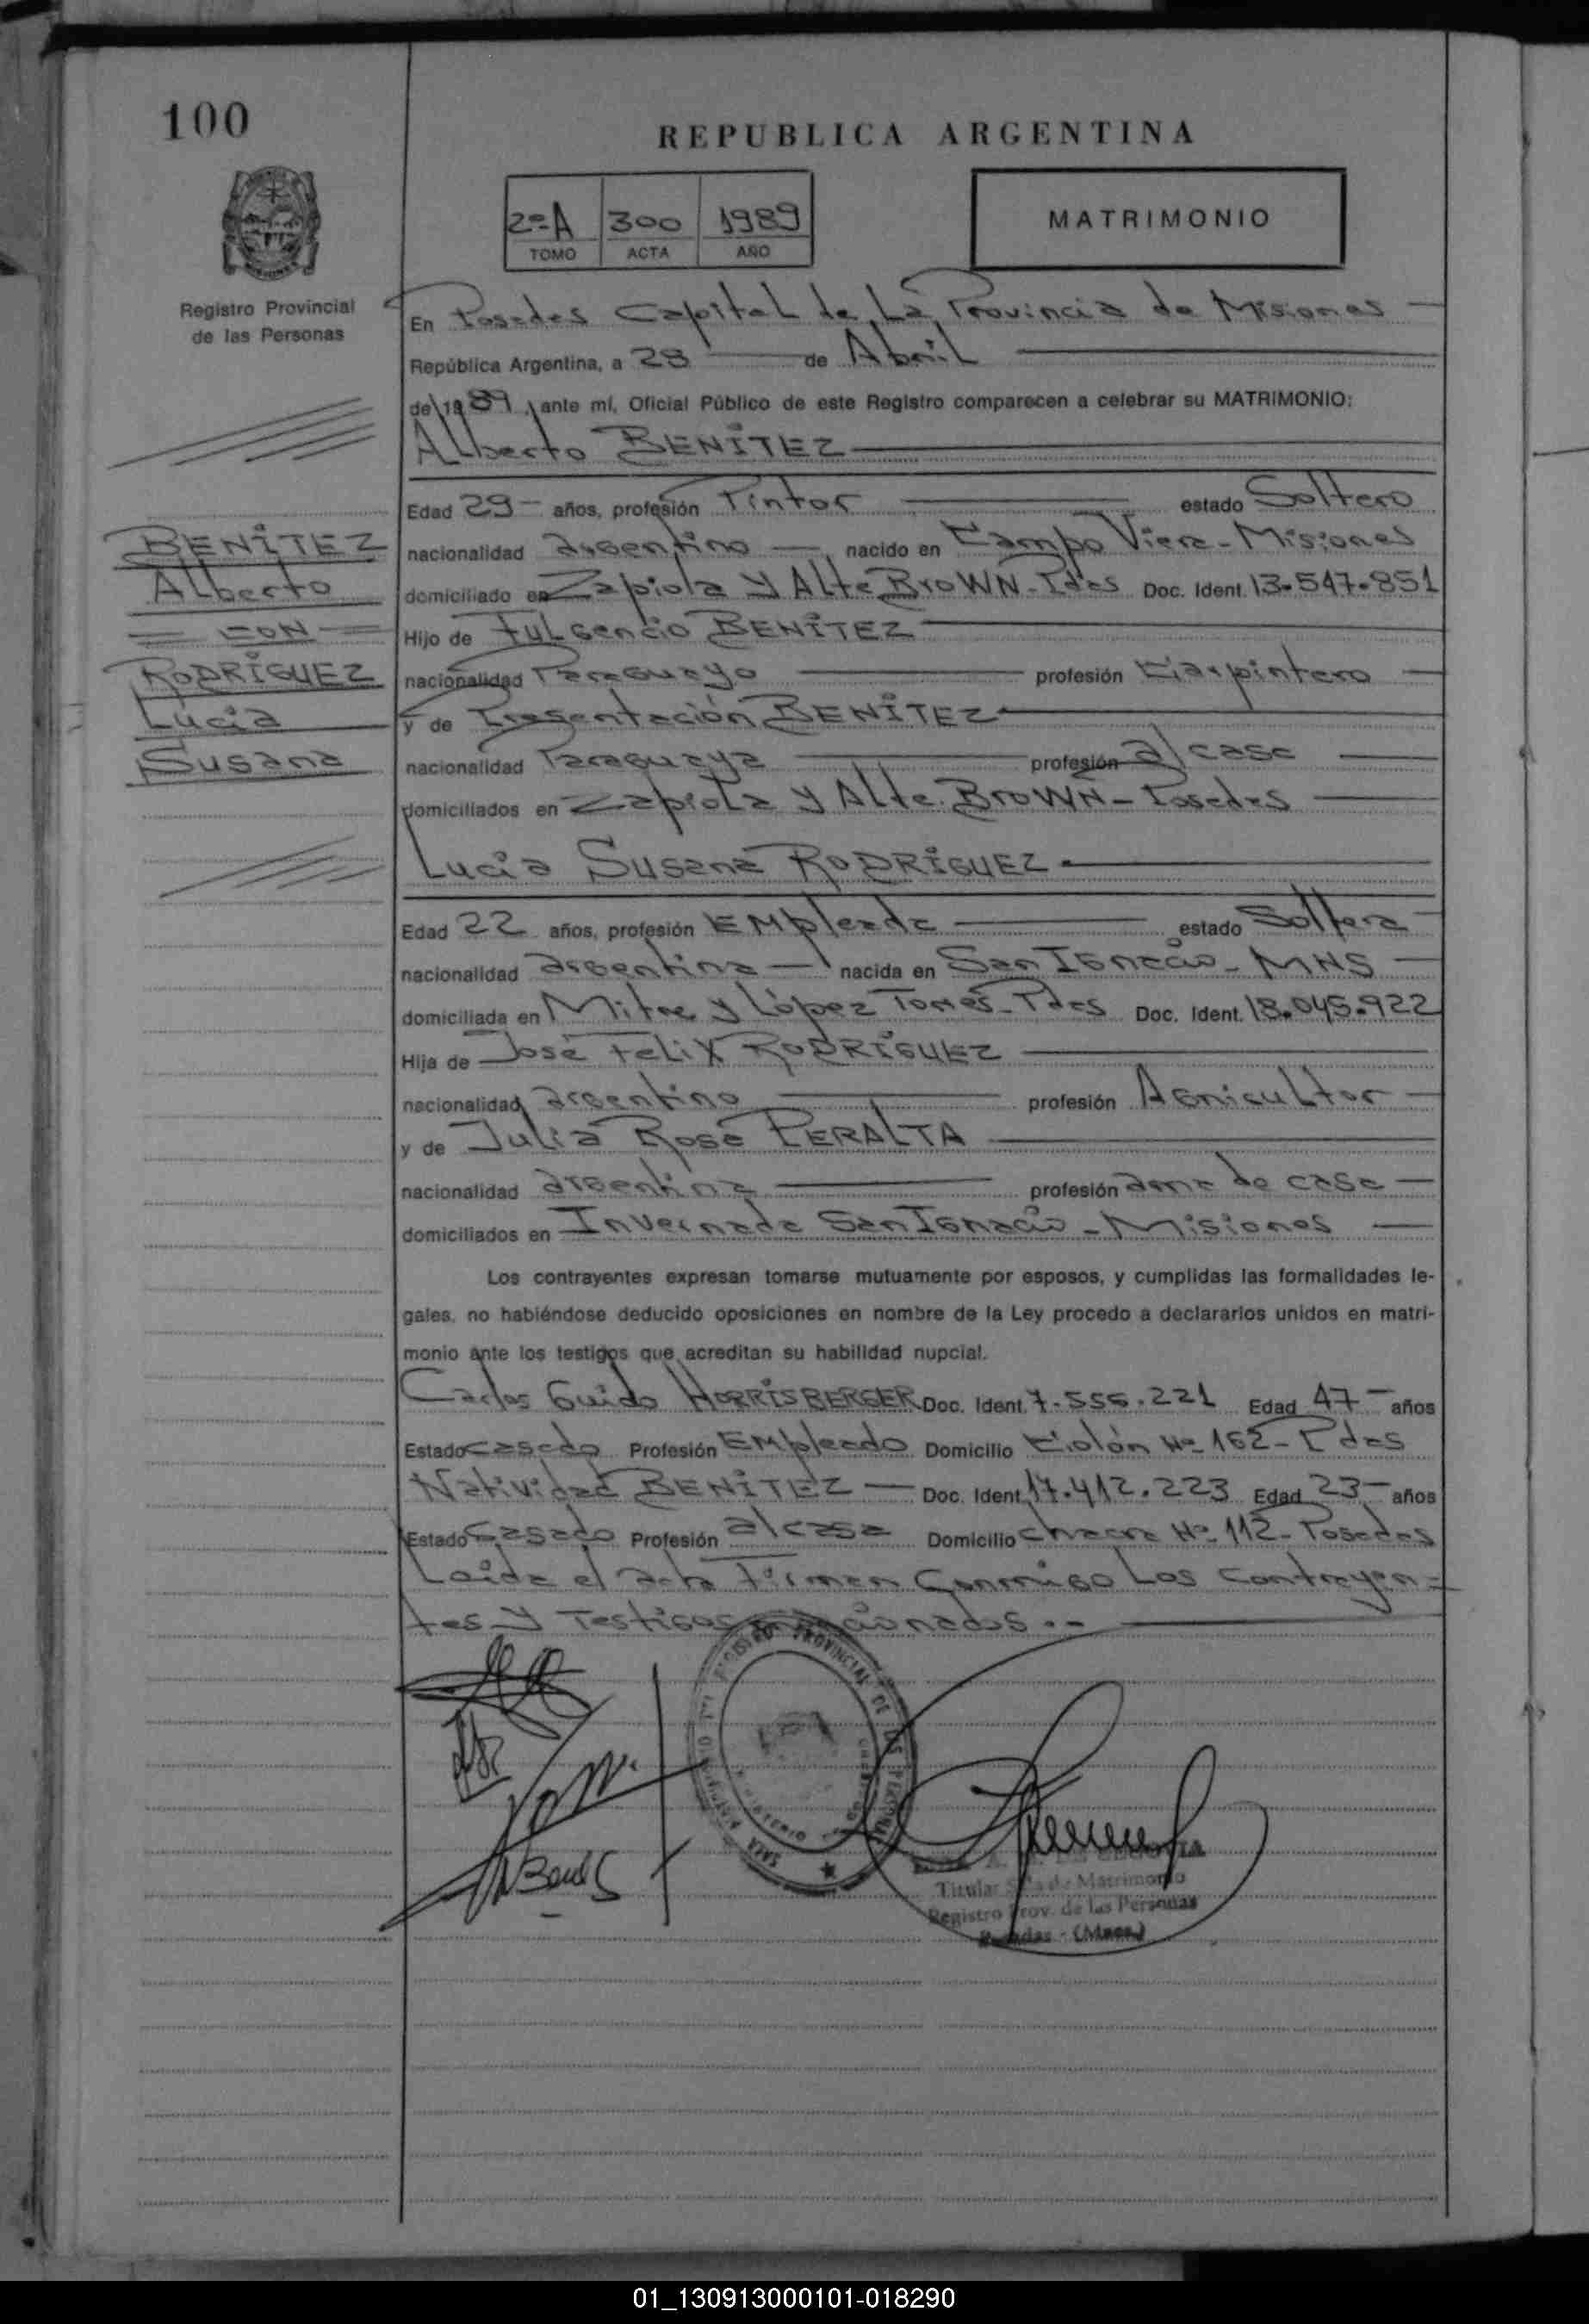 100
REPUBLICA ARGENTINA
2º-A 300 1989
TOMO ACTA AÑO
MATRIMONIO
Registro Provincial
de las Personas
En Posadas Capital de La Provincia de Misiones
República Argentina, a 28 de Abril
de 1989, ante mí, Oficial Público de este Registro comparecen a celebrar su MATRIMONIO:
Alberto BENÍTEZ
Edad 29 años, profesión Pintor estado Soltero
nacionalidad argentino nacido en Campo Viera - Misiones
domiciliado en Zapiola y Alte Brown - Pdas Doc. Ident. 13.547.851
Hijo de Fulgencio BENÍTEZ
nacionalidad Paraguayo profesión Carpintero
y de Presentación BENÍTEZ
nacionalidad Paraguaya profesión a/casa
domiciliados en Zapiola y Alte. Brown - Posadas
BENÍTEZ
Alberto
CON
RODRÍGUEZ
Lucia
Susana
Lucia Susana RODRÍGUEZ
Edad 22 años, profesión Empleada estado Soltera
nacionalidad argentina nacida en San Ignacio - MNS
domiciliada en Mitre y López Torres - Pdas Doc. Ident. 18.045.922
Hija de José Felix RODRÍGUEZ
nacionalidad argentino profesión Agricultor
y de Julia Rosa PERALTA
nacionalidad argentina profesión ama de casa
domiciliados en Invernada San Ignacio - Misiones
Los contrayentes expresan tomarse mutuamente por esposos, y cumplidas las formalidades le-
gales, no habiéndose deducido oposiciones en nombre de la Ley procedo a declararlos unidos en matri-
monio ante los testigos que acreditan su habilidad nupcial.
Carlos Guido HORRISBERGER Doc. Ident. 7.556.221 Edad 47 años
Estado casado Profesión Empleado Domicilio Colón Nº 162 - Pdas
Natividad BENÍTEZ Doc. Ident. 17.412.223 Edad 23 años
Estado Casado Profesión a/casa Domicilio chacra Nº 112 - Posadas
Leida el acta Firman Conmigo Los Contrayen-
tes y Testigos
REGISTRO PROVINCIAL DE LAS PERSONAS
Titular de Matrimonio
Registro Prov. de las Personas
Posadas - (Mnes.)
01_130913000101-018290